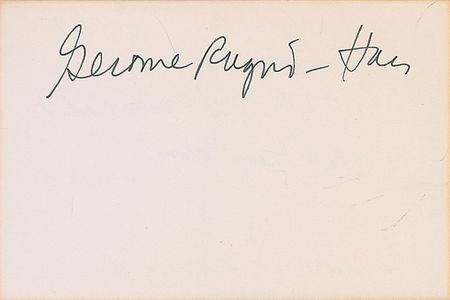 Gerome Ragni – Hair